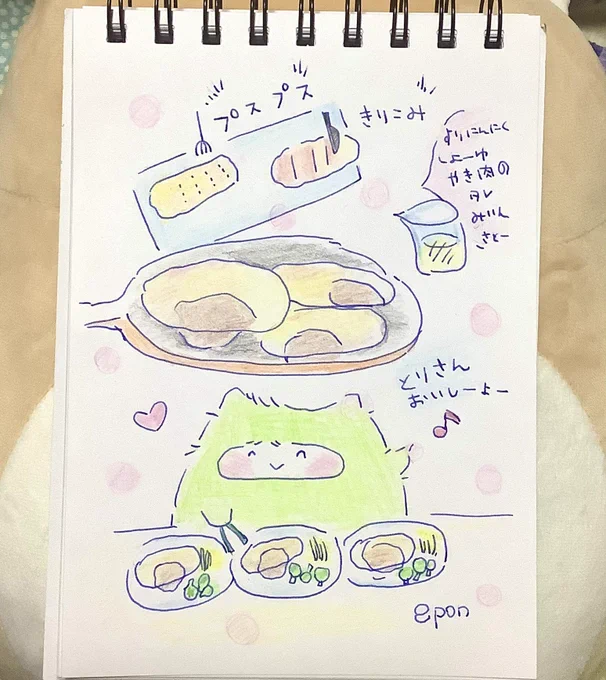 プスプス
きりこみ
よりにんにく
しょーゆ
やき肉の
タレ
みりん
さとー
とりさん
おいしーよー
epon